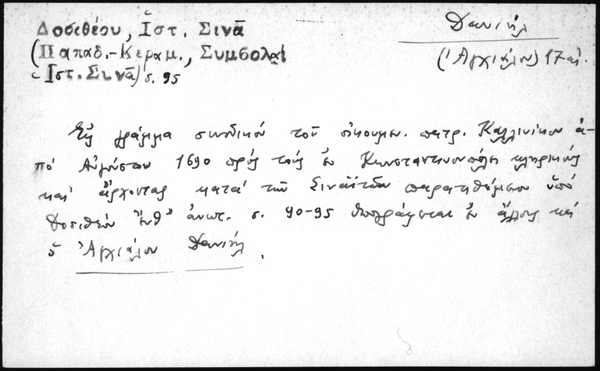 Δοσιθέου, Ἱστ. Σινᾶ
Δανιήλ
(Παπαδ.-Κεραμ., Συμβολαὶ
(Ἀγχιάλου) 17 αἰ.
Ἱστ. Σινᾶ) σ. 95
Εἰς γράμμα συνοδικὸν τοῦ οἰκουμεν. πατρ. Καλλινίκου ἀ-
πὸ Αὐγούστου 1690 πρὸς τοὺς ἐν Κωνσταντινουπόλει κληρικοὺς
καὶ ἄρχοντας κατὰ τῶν Σιναϊτῶν παρατιθέμενον ὑπὸ
Δοσιθέου ἔνθ' ἀνωτ. σ. 90-95 ὑπογράφεται ἐν ἄλλοις καὶ
ὁ Ἀγχιάλου Δανιήλ.